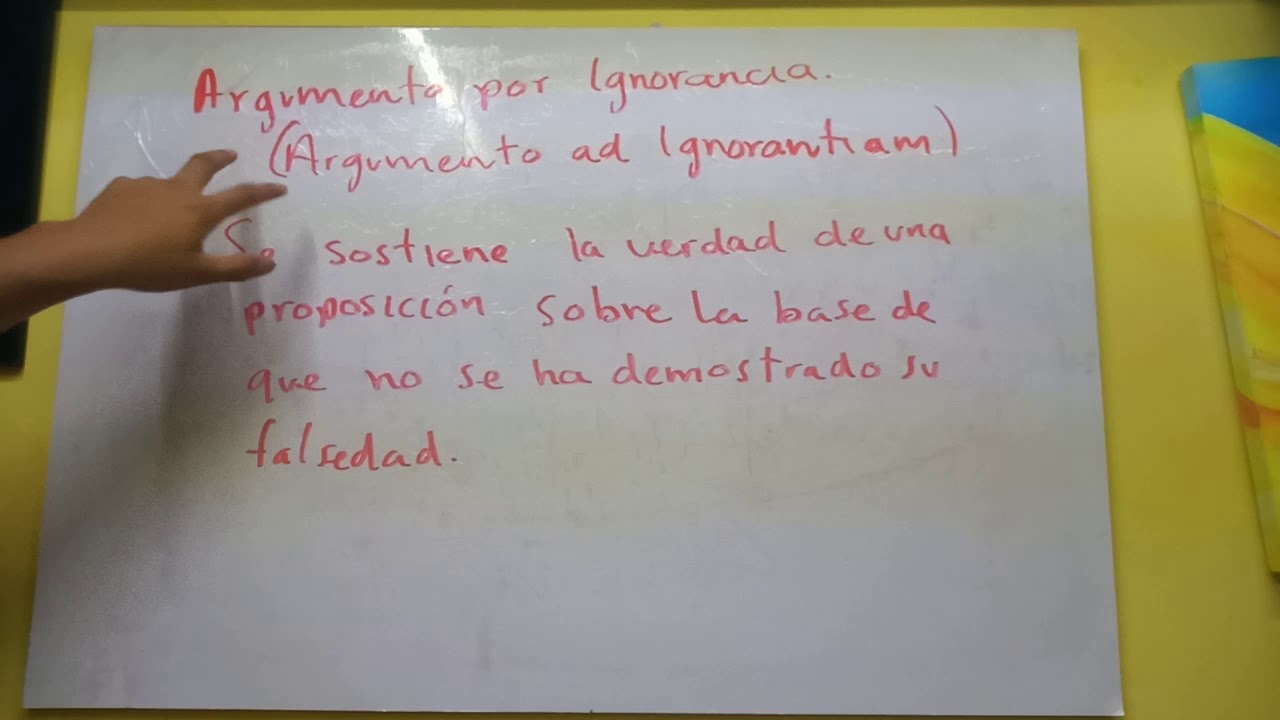 Argumento por Ignorancia.
(Argumento ad Ignorantiam)
Se sostiene la verdad de una
proposición sobre la base de
que no se ha demostrado su
falsedad.